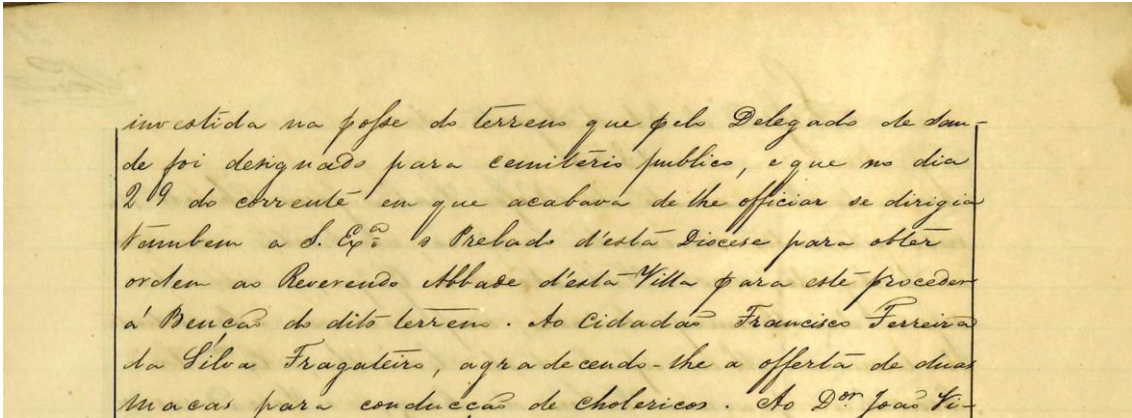 investida na posse do terreno que pelo Delegado de Sau-
de foi designado para cemitério publico, e que no dia
29 do corrente em que acabava de lhe officiar se dirigia
tambem a S. Exª o Prelado d'esta Diocese para obter
ordem ao Reverendo Abbade d'esta Villa para este proceder
á Benção do dito terreno. Ao Cidadão Francisco Ferreira
da Silva Fragateiro, agradecendo-lhe a offerta de duas
macas para conducção de cholericos. Ao Dor João Vi-